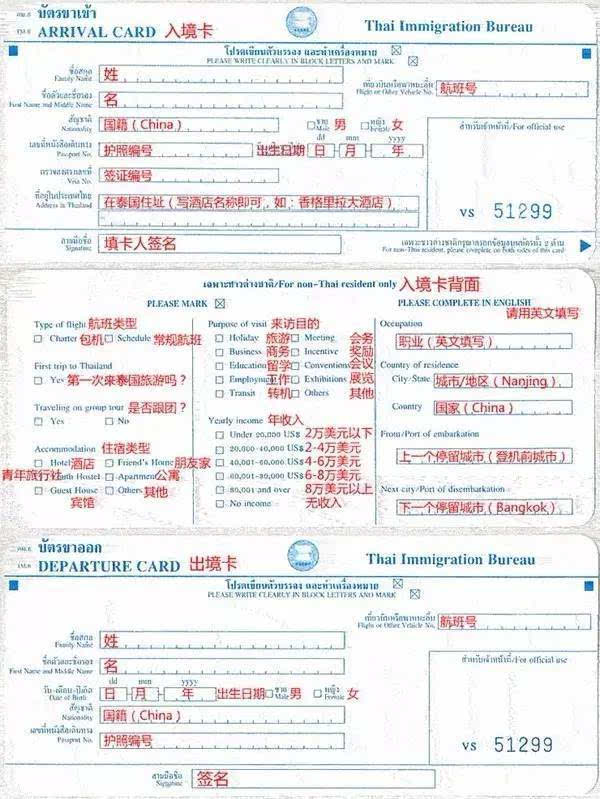 ตม.6 บัตรขาเข้า
TM.6 ARRIVAL CARD 入境卡
Thai Immigration Bureau
โปรดเขียนตัวบรรจง และทำเครื่องหมาย ☒
PLEASE WRITE CLEARLY IN BLOCK LETTERS AND MARK ☒
ชื่อสกุล
Family Name 姓
ชื่อตัวและชื่อรอง
First Name and Middle Name 名
เที่ยวบินหรือพาหนะอื่น
Flight or Other Vehicle No. 航班号
สัญชาติ
Nationality 国籍(China)
ชาย
Male 男
หญิง
Female 女
เลขที่หนังสือเดินทาง
Passport No. 护照编号
出生日期
dd mm yyyy
日 月 年
ตรวจลงตราเลขที่
Visa No. 签证编号
ที่อยู่ในประเทศไทย
Address in Thailand 在泰国住址(写酒店名称即可,如:香格里拉大酒店)
ลายมือชื่อ
Signature 填卡人签名
สำหรับเจ้าหน้าที่/For official use
VS 51299
เฉพาะชาวต่างชาติกรุณากรอกข้อมูลบนบัตรทั้ง 2 ด้าน
For non-Thai resident, please complete on both sides of this card
เฉพาะชาวต่างชาติ/For non-Thai resident only 入境卡背面
PLEASE MARK ☒
PLEASE COMPLETE IN ENGLISH
请用英文填写
Type of flight 航班类型
Charter 包机 Schedule 常规航班
First trip to Thailand
Yes 第一次来泰国旅游吗?
Traveling on group tour 是否跟团?
Yes No
Accommodation 住宿类型
Hotel 酒店 Friend's Home 朋友家
青年旅行社 Youth Hostel Apartment 公寓
Guest House Others 其他
宾馆
Purpose of visit 来访目的
Holiday 旅游 Meeting 会务
Business 商务 Incentive 奖励
Education 留学 Conventions 会议
Employment 工作 Exhibitions 展览
Transit 转机 Others 其他
Yearly income 年收入
Under 20,000 US$ 2万美元以下
20,000-40,000 US$ 2-4万美元
40,001-60,000 US$ 4-6万美元
60,001-80,000 US$ 6-8万美元
80,001 and over 8万美元以上
No income 无收入
Occupation
职业(英文填写)
Country of residence
City/State 城市/地区(Nanjing)
Country 国家(China)
From/Port of embarkation
上一个停留城市(登机前城市)
Next city/Port of disembarkation
下一个停留城市(Bangkok)
ตม.6 บัตรขาออก
TM.6 DEPARTURE CARD 出境卡
Thai Immigration Bureau
โปรดเขียนตัวบรรจง และทำเครื่องหมาย ☒
PLEASE WRITE CLEARLY IN BLOCK LETTERS AND MARK ☒
ชื่อสกุล
Family Name 姓
เที่ยวบินหรือพาหนะอื่น
Flight or Other Vehicle No. 航班号
ชื่อตัวและชื่อรอง
First Name and Middle Name 名
dd mm yyyy
วัน-เดือน-ปีเกิด
Date of Birth 日 月 年 出生日期
ชาย
Male 男
หญิง
Female 女
สัญชาติ
Nationality 国籍(China)
เลขที่หนังสือเดินทาง
Passport No. 护照编号
สำหรับเจ้าหน้าที่/For official use
VS 51299
ลายมือชื่อ
Signature 签名